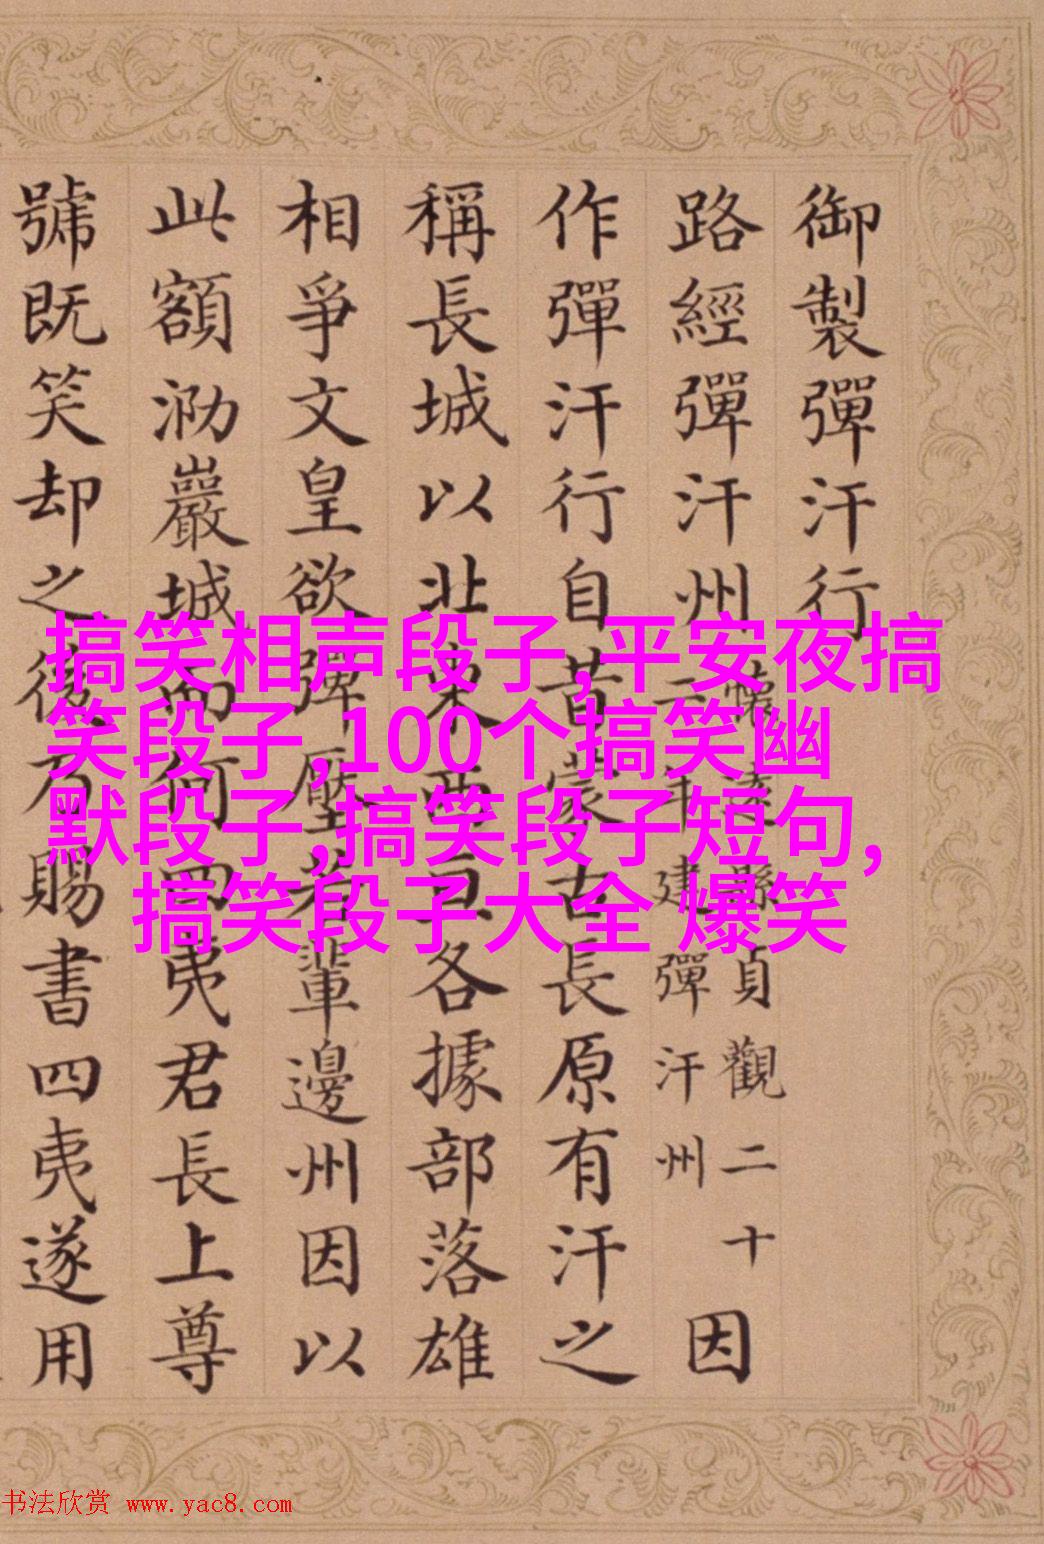 御製彈汗行
路經彈汗州
懷遠縣貞觀二十
二年建彈汗州
因
作彈汗行自昔蒙古長原有汗之
稱長城以北東西亘各據部落雄
相爭文皇欲彈壓若輩邊州因以
此額泐巖城而何四夷君長上尊
號既笑却之後乃賜書四夷遂用
搞笑相声段子,平安夜搞
笑段子,100个搞笑幽
默段子,搞笑段子短句,
搞笑段子大全 爆笑
书法欣赏 www.yac8.com